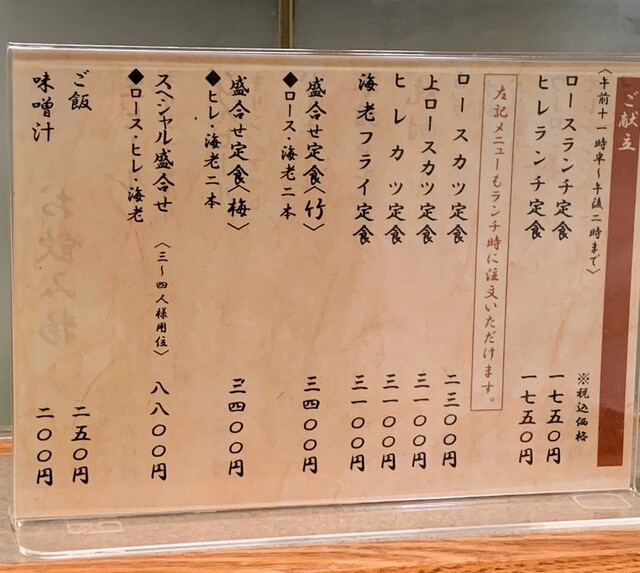 ご献立
〈午前十一時半~午後二時まで〉
※税込価格
ロースランチ定食 一七五〇円
ヒレランチ定食 一七五〇円
左記メニューもランチ時に注文いただけます。
ロースカツ定食 二三〇〇円
上ロースカツ定食 三一〇〇円
ヒレカツ定食 三一〇〇円
海老フライ定食 三一〇〇円
盛合せ定食〈竹〉 三四〇〇円
◆ロース・海老二本
盛合せ定食〈梅〉 三四〇〇円
◆ヒレ・海老二本
スペシャル盛合せ 〈三~四人様用位〉 八八〇〇円
◆ロース・ヒレ・海老
ご飯 二五〇円
味噌汁 二〇〇円